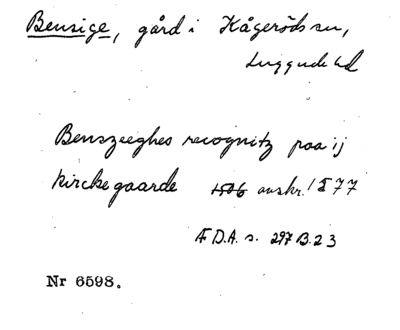 Bensige, gård i Kågeröds sn,
Luggude hd
Benszeeghes recognitz paa ij
kirckegaarde 1506 avskr. 1577
Æ D.A. s. 297 B. 23
Nr 6598.